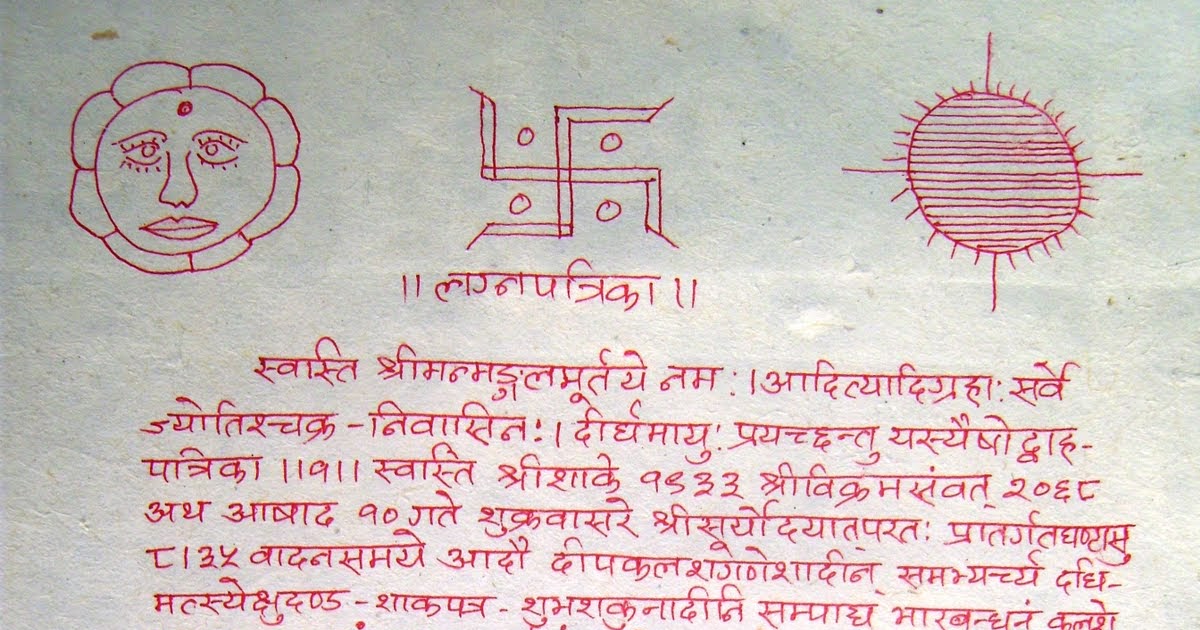 ॥ लग्नपत्रिका ॥
स्वस्ति श्रीमन्मङ्गलमूर्तये नमः । आदित्यादिग्रहाः सर्वे
ज्योतिश्चक्र - निवासिनः । दीर्घमायुः प्रयच्छन्तु यस्यैषोद्वाह-
पत्रिका ॥१॥ स्वस्ति श्रीशाके १९३३ श्रीविक्रमसंवत् २०६८
अथ आषाढ १० गते शुक्रवासरे श्रीसूर्योदयात्परतः प्रातर्गतघण्यासु
८।३५ वादनसमये आदौ दीपकलशगणेशादीन् समभ्यर्च्य दधि-
मत्स्येक्षुदण्ड - शाकपत्र - शुभशकुनादीनि सम्पाद्य भारबन्धनं कलशे